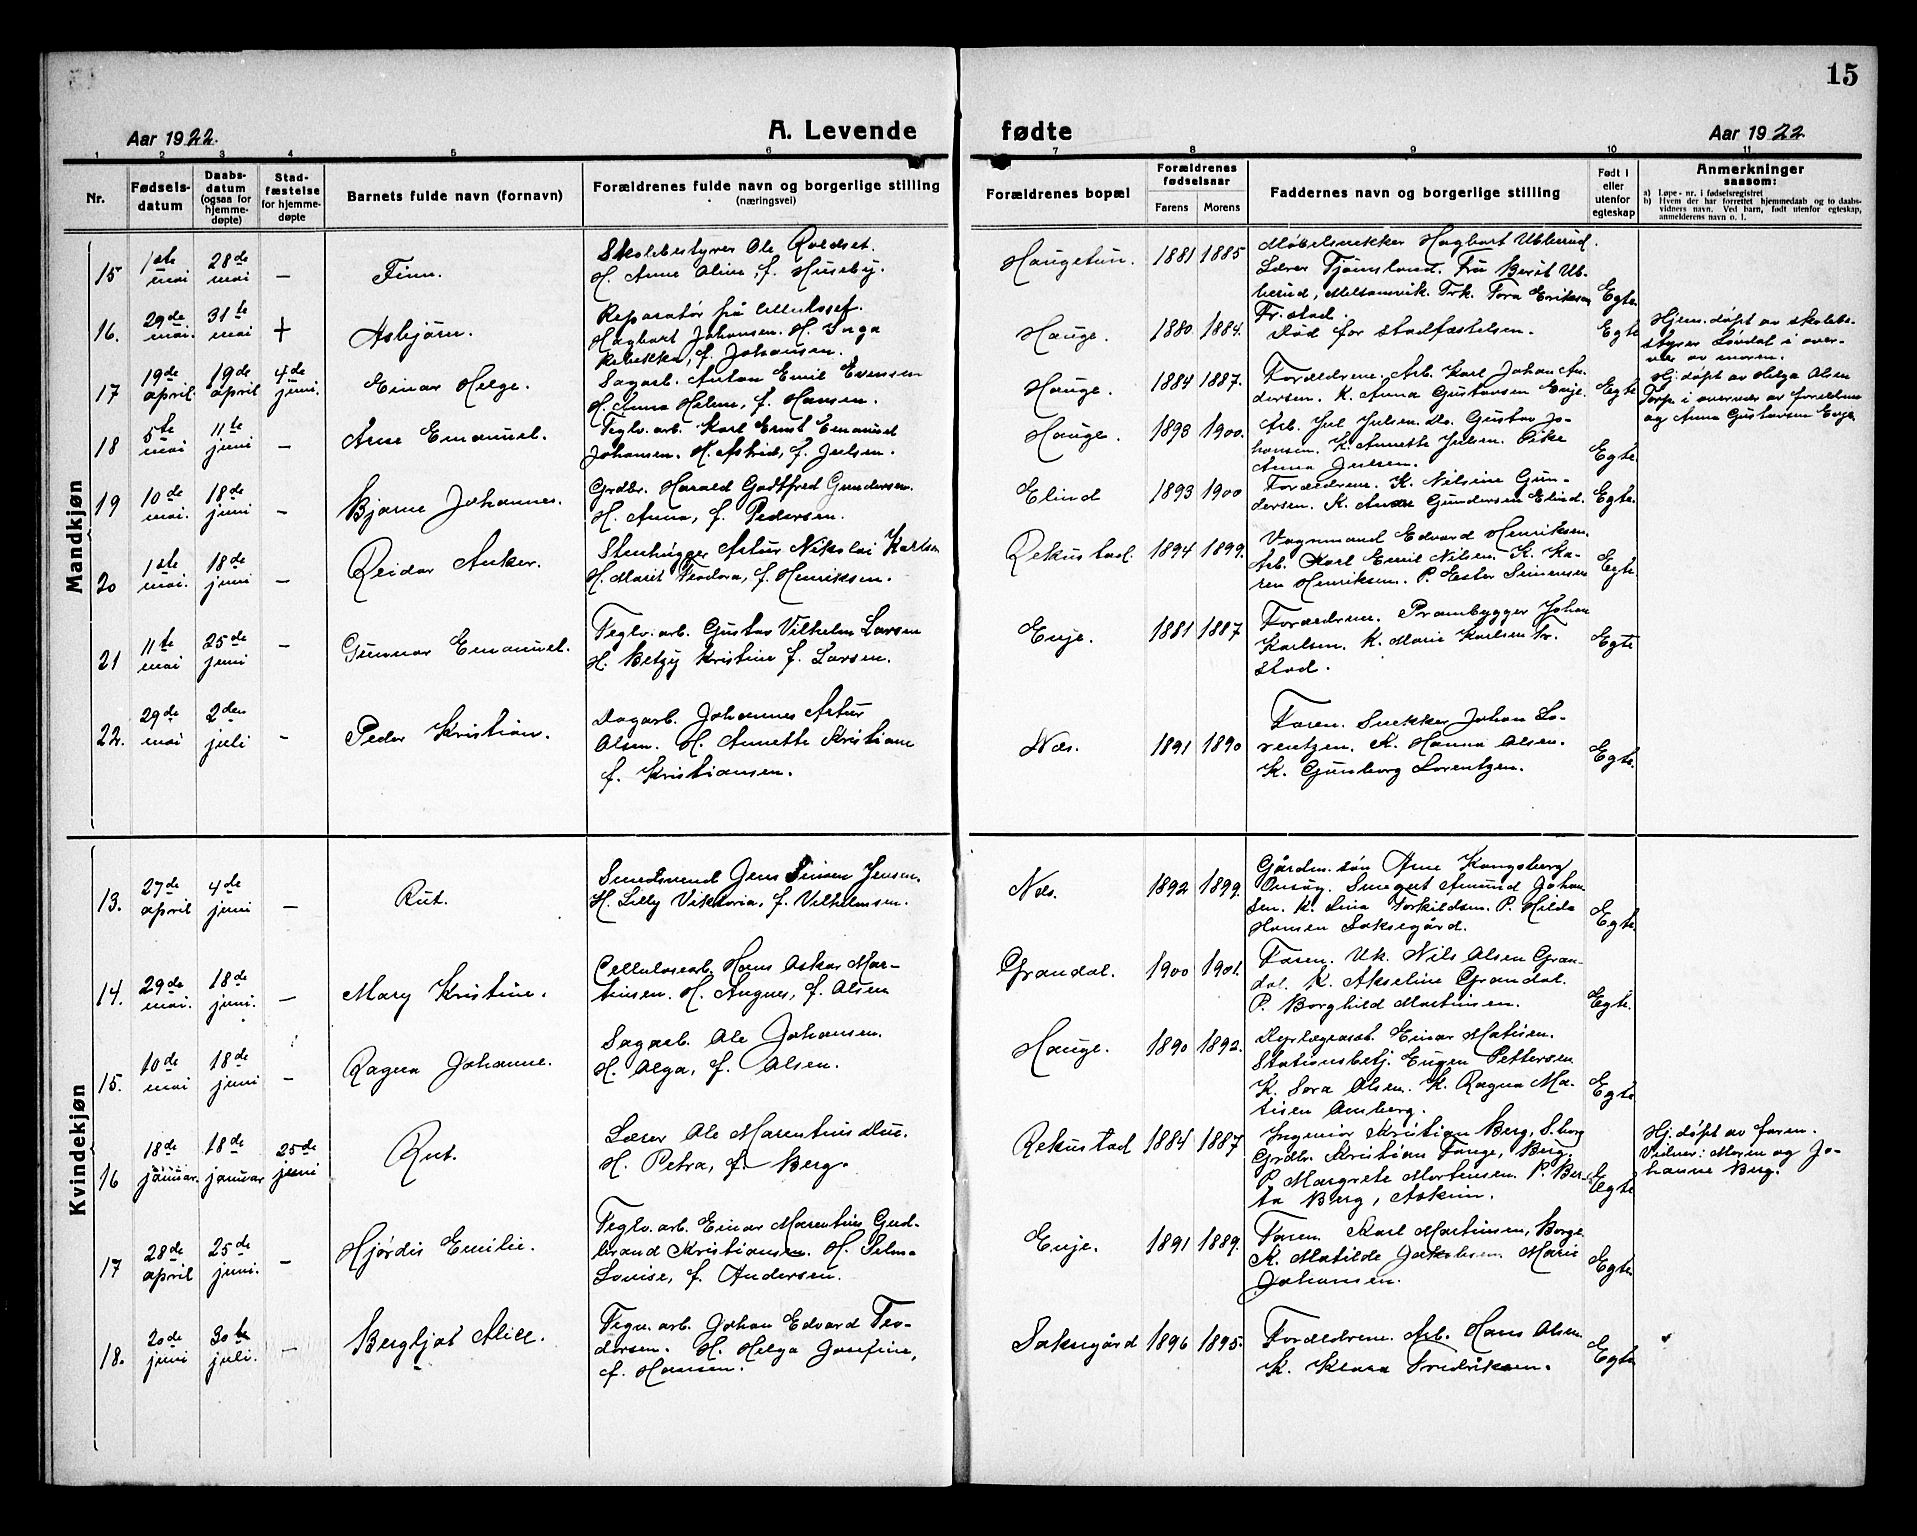 15
Aar 1922.
A. Levende
fødte
Aar 1922.
1 2 3 4 5 6 7 8 9 10 11
Nr.
Fødsels-
datum
Daabs-
datum
(ogsaa for
hjemme-
døpte)
Stad-
fæstelse
for hjemme-
døpte
Barnets fulde navn (fornavn)
Forældrenes fulde navn og borgerlige stilling
(næringsvei)
Forældrenes bopæl
Forældrenes
fødselsaar
Farens Morens
Faddernes navn og borgerlige stilling
Født i
eller
utenfor
egteskap
Anmerkninger
saasom:
a) Løpe-nr. i fødselsregistret
b) Hvem der har forrettet hjemmedaab og to daabs-
vidners navn. Ved barn, født utenfor egteskap,
anmelderens navn o. l.
Mandkjøn
15 1ste mai 28de mai — Finn.
Skolebestyrer Ole Roldset.
H. Anne Oline, f. Huseby.
Haugetun. 1881 1885
Møbelsnekker Hagbart Ubberud.
Lærer Tjømsland. Fru Berit Ub-
berud, Frk. Tora Eriksen
Fr.stad.
Egte.
16. 29de mai. 31te mai + Asbjørn.
Reparatør på
Hagbart Johansen. H. Inga
Rebekka, f. Johansen.
Hauge. 1880. 1884.
Død før stadfæstelsen.
Egte
Hjem.døpt av skolebe-
styrer Løvdal i over-
vær av moren.
17 19de april. 19de april 4de juni. Einar Helge.
Sagarb. Anton Emil Evensen
H. Anna Helene, f. Hansen.
Hauge. 1884 1887.
Forældrene. Arb. Karl Johan An-
dersen. K. Anna Gustavsen Enje.
Egte
Hj.døpt av Helga Olsen
Torp i overvær av foreldrene
og Anna Gustavsen Enje.
18 5te mai 11te juni — Arne Emanuel.
Teglv.arb. Karl Ernst Emanuel
Johansen. H. Astrid, f. Julsen.
Hauge. 1893 1900.
Arb. Jul Julsen. Do. Gustav Jo-
hansen. K. Annette Julsen. Pike
Anna Julsen.
Egte.
19 10de mai. 18de juni — Bjarne Johannes.
Grdbr. Harald Godtfred Gundersen.
H. Anna, f. Pedersen.
Elind 1893 1900
Forældrene. K. Nilsine Gun-
dersen. K. Gundersen Elind.
Egte.
20 1ste mai. 18de juni — Reidar Anker.
Stenhugger Artur Nikolai Karlsen
H. Marit Teodora, f. Henriksen.
Rekustad. 1894 1899.
Vognmand Edvard Henriksen.
Arb. Karl Emil Nilsen. K. Ka-
ren Henriksen. P. Ester Simensen
Egte.
21 11te mai 25de juni — Gunnar Emanuel.
Teglv.arb. Gustav Vilhelm Larsen
H. Betzy Kristine f. Larsen.
Enje. 1881 1887
Forældrene. Prambygger Johan
Karlsen. K. Marie Karlsen Fr.
stad.
Egte
22. 29de mai 2den juli — Peder Kristian.
Dagarb. Johannes Artur
Olsen. H. Annette Kristiane
f. Kristiansen.
Næs. 1891 1890
Faren. Snekker Johan Lo-
rentzen. K. Hanna Olsen.
K. Gunborg Lorentzen.
Egte.
Kvindekjøn
13. 27de april 4de juni — Rut.
Smedsvend Jens Simon Jensen.
H. Lilly Viktoria, f. Vilhelmsen.
Næs. 1892 1899.
Gårdm.søn Arne Kongsberg
Onsøy. Smegut Amund Johan-
sen. K. Lina Torkildsen. P. Hilda
Hansen Saksegård.
Egte.
14. 29de mai 18de juni. — Mary Kristine.
Cellulosearb. Hans Oskar Mar-
tinsen. H. Augnes, f. Olsen
Grandal. 1900 1901.
Faren. Uk. Nils Olsen Gran-
dal. K. Akseline Grandal.
P. Borghild Martinsen.
Egte.
15. 10de mai 18de juni — Ragna Johanne.
Sagarb. Ole Johansen.
H. Olga, f. Olsen.
Hauge. 1890 1892.
Einar Matisen.
Stationsbetj. Eugen Pettersen
K. Sara Olsen. K. Ragna Ma-
tisen Amberg.
Egte.
16 18de januar. 18de januar 25de juni Rut.
Lærer Ole Marentius Due.
H. Petra, f. Berg.
Rekustad 1884 1887
Ingeniør Kristian Berg, S.borg
Grdbr. Kristian Tange, Berg.
P. Margrete Mortensen. P. Ber-
ta Berg, Askim.
Egte
Hj.døpt av faren.
Vidner: Moren og Jo-
hanne Berg.
17 28de april 25de juni. — Hjørdis Emilie.
Teglv.arb. Einar Marentius Gud-
brand Kristiansen. H. Selma
Lovise, f. Andersen.
Enje. 1891 1889.
Faren. Karl Martinsen, Borge
K. Matilde Jakobsen. Marie
Johansen.
Egte.
18. 20de juni 30te juli. — Bergljot Alice.
Tegv.arb. Johan Edvard Teo-
dorsen. H. Helga Josefine,
f. Hansen.
Saksegård 1896 1895.
Forældrene. Arb. Hans Olsen.
K. Klara Fredriksen.
Egte